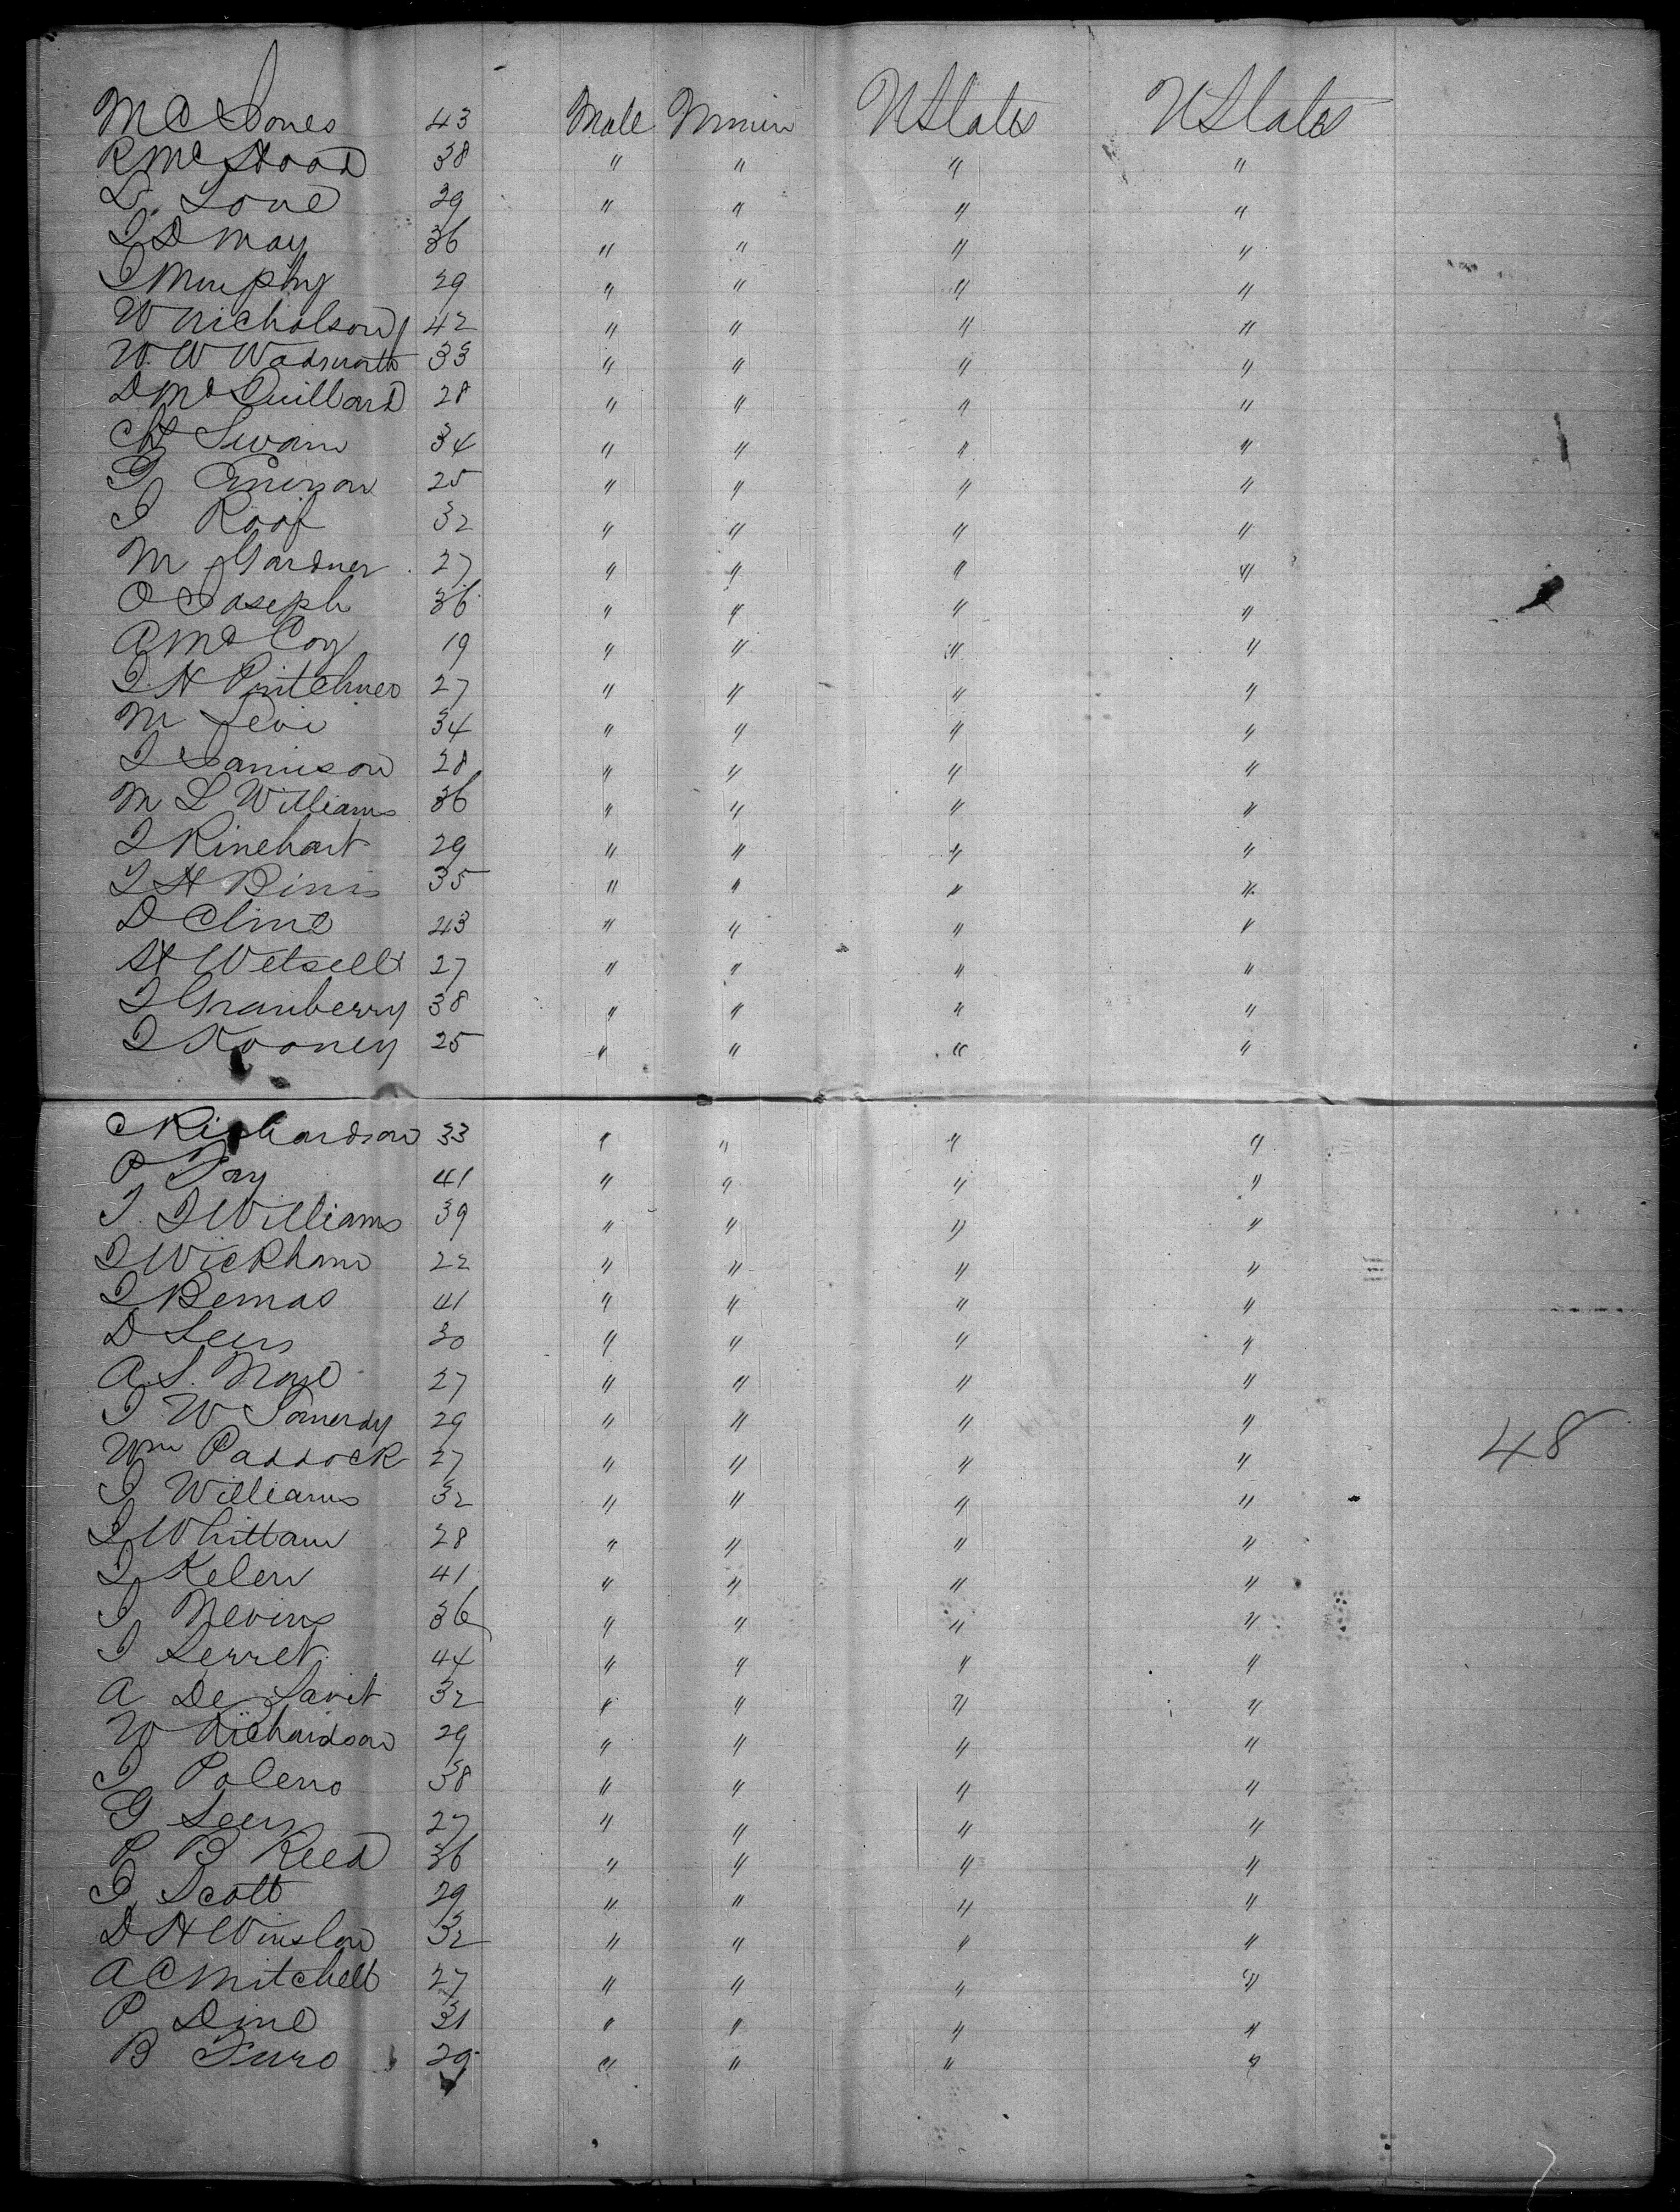 M C Jones 43 Male Miner U States U States
R Mc Hood 38 " " " "
L. Love 29 " " " "
J D May 36 " " " "
J Murphy 29 " " " "
W Nicholson 42 " " " "
W. W Wadsworth 33 " " " "
D Mc Quillard 28 " " " "
C H Swain 34 " " " "
G Emerson 25 " " " "
J Roof 32 " " " "
M Gardner 27 " " " "
O Joseph 36 " " " "
A Mc Coy 19 " " " "
J. H 27 " " " "
M Levi 34 " " " "
J Jamison 28 " " " "
M L Williams 36 " " " "
J Rinehart 29 " " " "
J H Binis 35 " " " "
D Cline 43 " " " "
H Wetsell 27 " " " "
J Granberry 38 " " " "
J Rooney 25 " " " "
C Richardson 33 " " " "
P Day 41 " " " "
T. J Williams 39 " " " "
J Wickham 22 " " " "
J Bemas 41 " " " "
D Seers 30 " " " "
A. S. 27 " " " "
J W 29 " " " "
Wm Paddock 27 " " " " 48
J Williams 32 " " " "
J Whittam 28 " " " "
J Kelew 41 " " " "
J Nevins 36 " " " "
J Serret 44 " " " "
A De Savit 32 " " " "
W Richardson 29 " " " "
J Palerno 38 " " " "
G Seers 27 " " " "
P B Reed 36 " " " "
J Scott 29 " " " "
D H Winslow 32 " " " "
A C Mitchell 27 " " " "
P Dine 31 " " " "
B Furo 29 " " " "